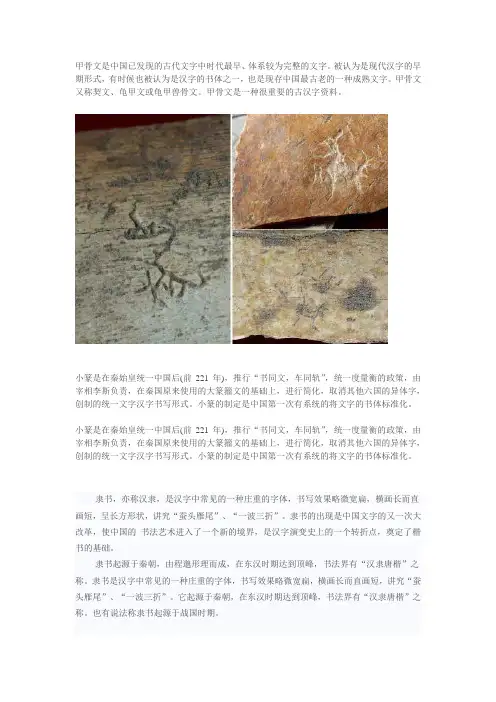 甲骨文是中国已发现的古代文字中时代最早、体系较为完整的文字。被认为是现代汉字的早
期形式，有时候也被认为是汉字的书体之一，也是现存中国最古老的一种成熟文字。甲骨文
又称契文、龟甲文或龟甲兽骨文。甲骨文是一种很重要的古汉字资料。
小篆是在秦始皇统一中国后(前 221 年)，推行“书同文，车同轨”，统一度量衡的政策，由
宰相李斯负责，在秦国原来使用的大篆籀文的基础上，进行简化，取消其他六国的异体字，
创制的统一文字汉字书写形式。小篆的制定是中国第一次有系统的将文字的书体标准化。
小篆是在秦始皇统一中国后(前 221 年)，推行“书同文，车同轨”，统一度量衡的政策，由
宰相李斯负责，在秦国原来使用的大篆籀文的基础上，进行简化，取消其他六国的异体字，
创制的统一文字汉字书写形式。小篆的制定是中国第一次有系统的将文字的书体标准化。
隶书，亦称汉隶，是汉字中常见的一种庄重的字体，书写效果略微宽扁，横画长而直
画短，呈长方形状，讲究“蚕头雁尾”、“一波三折”。隶书的出现是中国文字的又一次大
改革，使中国的 书法艺术进入了一个新的境界，是汉字演变史上的一个转折点，奠定了楷
书的基础。
隶书起源于秦朝，由程邈形理而成，在东汉时期达到顶峰，书法界有“汉隶唐楷”之
称。隶书是汉字中常见的一种庄重的字体，书写效果略微宽扁，横画长而直画短，讲究“蚕
头雁尾”、“一波三折”。它起源于秦朝，在东汉时期达到顶峰，书法界有“汉隶唐楷”之
称。也有说法称隶书起源于战国时期。